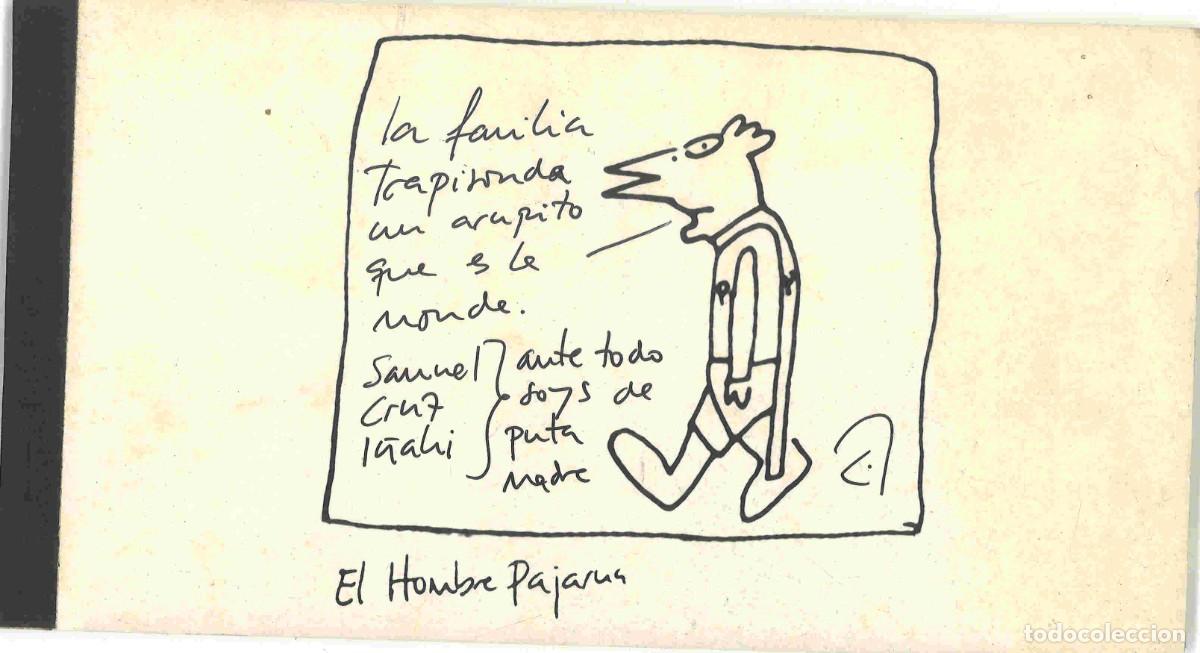 la familia
Trapisonda
un grupito
que es la
monda.
Samuel
Cruz
Iñaki
ante todo
soys de
puta
madre
El Hombre Pajarua
todocoleccion